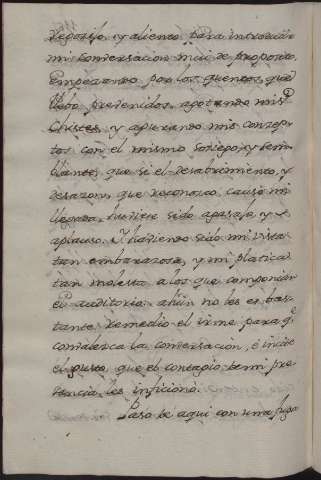 regosijo, y aliento para introducir
mi conversacion mui de proposito,
Empezando por los quentos, que
llebo prevenidos, agotando mis
Chistes, y apurando mis concep-
tos con el mismo sosiego, y sem-
blante, que si el desabrimiento, y
desazon, que reconosco causó mi
llegada, huviera sido agasajo y
aplauso. I haviendo sido mi vista
tan embarazosa, y mi platica
tan molesta a los que componian
el auditorio: aún no les es bas-
tante remedio el irme para qe
convalesca la conversacion, e incite
el gusto, que el contagio de mi pre-
sencia les inficionó.
Paso de aqui con una fuga